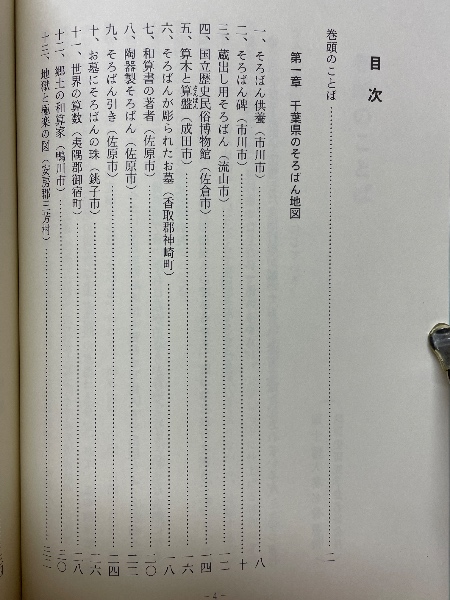 目次
巻頭のことば……………………一
第一章　千葉県のそろばん地図
一、そろばん供養（市川市）……………………八
二、そろばん碑（市川市）……………………十
三、蔵出し用そろばん（流山市）……………………一二
四、国立歴史民俗博物館（佐倉市）……………………一四
五、算木と算盤（成田市）……………………一六
六、そろばんが彫られたお墓（香取郡神崎町）……………………一八
七、和算書の著者（佐原市）……………………二〇
八、陶器製そろばん（佐原市）……………………二二
九、そろばん引き（佐原市）……………………二四
十、お墓にそろばんの珠（銚子市）……………………二六
十一、世界の算数（夷隅郡御宿町）……………………二八
十二、郷土の和算家（鴨川市）……………………三〇
十三、地獄と極楽の図（安房郡三芳村）……………………三二
－4－